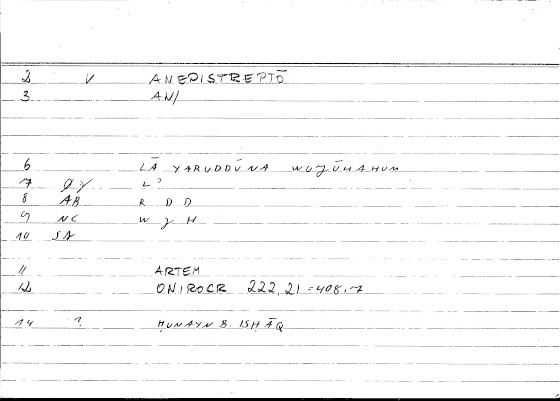 2 V ANEPISTREPTŌ
3 AN/
6 LĀ YARUDDŪNA WUǦŪHAHUM
7 ØY L'
8 AB R D D
9 NC W Ǧ H
10 SA
11 ARTEM
12 ONIROCR 222,21=408,7
14 ? ḤUNAYN B. ISḤĀQ